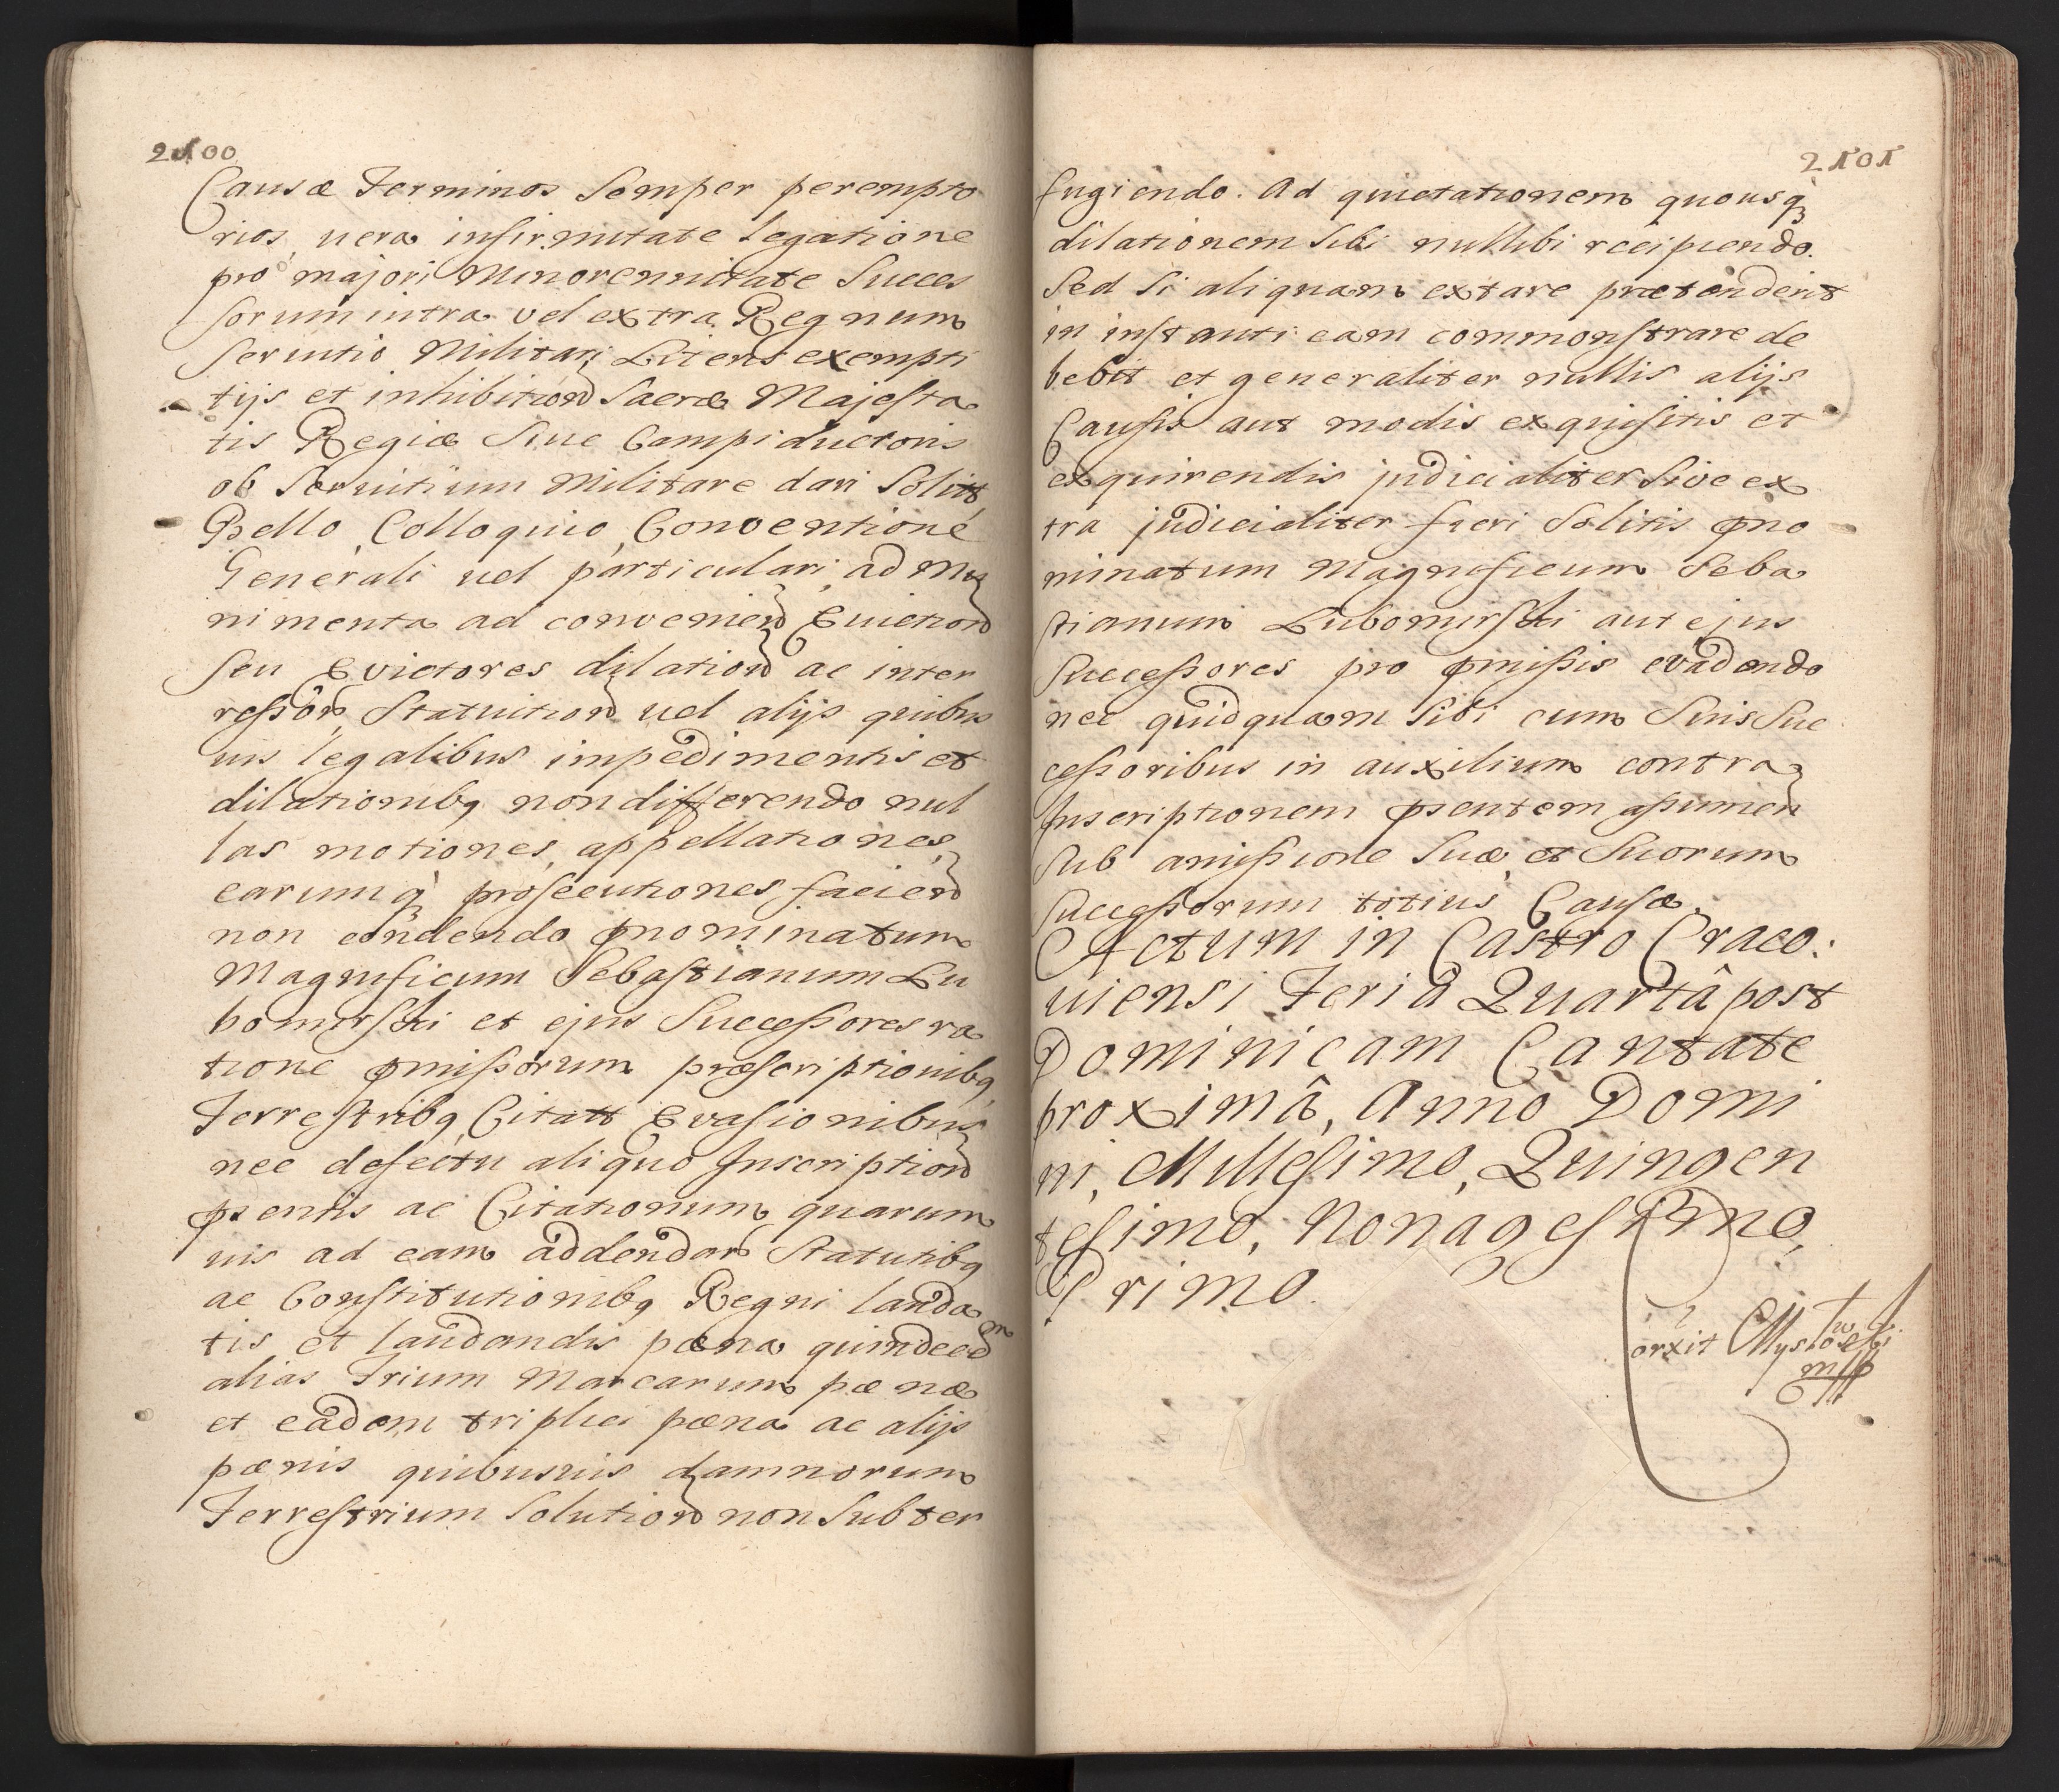 2100
Causæ Terminos Semper perempto
rios, vera infirmitate legatione
pro majori Minorennitate Succes
sorum intra vel extra Regnum
servitio Militari Literis exempti
tijs et inhibition Sacræ Majesta
tis Regiæ Sive Campiductoris
ob Servitium Militare dari Solitt
Bello, Colloquio, Conventione
Generali vel particulari, ad Mu
nimenta ad convenien Eviction
seu Evictores dilation ac inter
ressôn Statuition vel alijs quibus
vis legalibus impedimentis et
dilationibq non differendo nul
las motiones, appellationes,
earumq prosecutiones facien
non condendo pnominatum
Magnificum Sebastianum Lu
bomirski et ejus Successores ra
tione pmissorum præscriptionibq
Terrestribq Citatt Evasionibus
nec defectu aliquo Inscription
psentis ac Citationum quarum
vis ad eam addendar Statutibq
ac Constitutionibq Regni lauda
tis et laudandis pæna quindecem
alias Trium Marcarum pænæ
et eadem triplici pæna ac alijs
pænis quibusvis damnorum
Terrestrium Solution non Subter
2101
fugiendo. Ad quietationem quousq
dilationem Sibi nullibi recipiendo.
Sed Si aliquam extare prætenderit
in instanti eam commonstrare de
bebit et generaliter nullis alijs
Causis aut modis exquisitis et
exquirendis judicialiter Sive ex
tra judicialiter fieri Solitis pno
minatum Magnificum Seba
stianum Lubomirski aut ejus
Successores pro pmissis evadendo
nec quidquam Sibi cum Suis Suc
cessoribus in auxilium contra
Inscriptionem psentem assumen
Sub amissione Suæ et Suorum
Successorum totius Causæ.
Actum in Castro Craco:
viensi Feriâ Quartâ post
Dominicam Cantate
proximâ, Anno Domi
ni, Millesimo, Quingen
tesimo, Nonagesimo,
Primo.